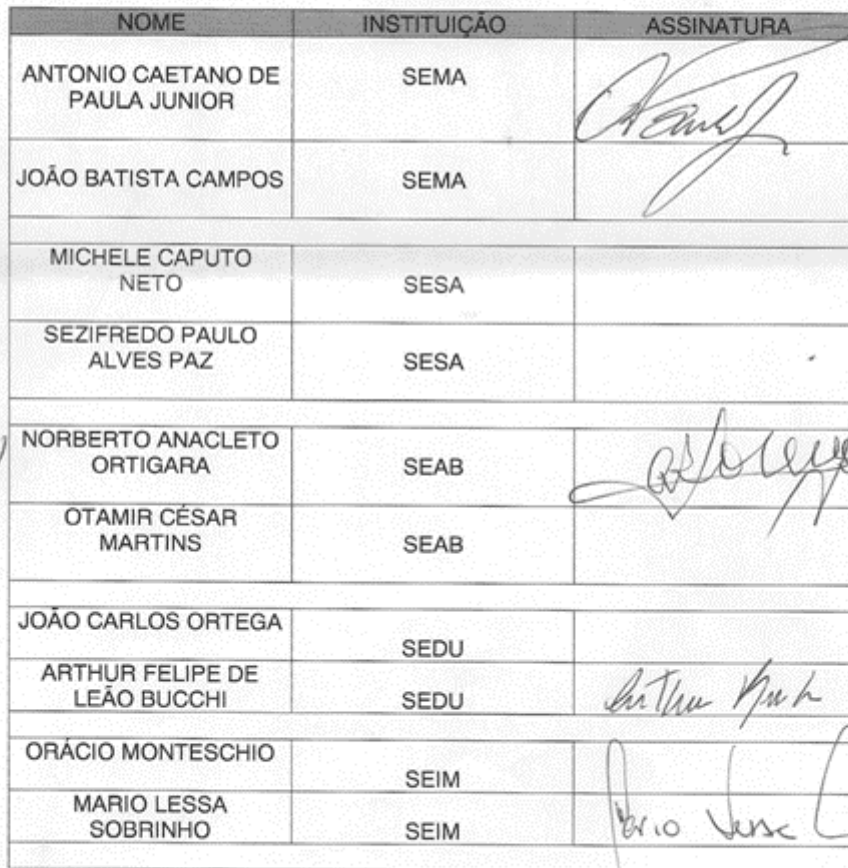 NOME INSTITUIÇÃO ASSINATURA
ANTONIO CAETANO DE
PAULA JUNIOR SEMA
JOÃO BATISTA CAMPOS SEMA
MICHELE CAPUTO
NETO SESA
SEZIFREDO PAULO
ALVES PAZ SESA
NORBERTO ANACLETO
ORTIGARA SEAB
OTAMIR CÉSAR
MARTINS SEAB
JOÃO CARLOS ORTEGA
SEDU
ARTHUR FELIPE DE
LEÃO BUCCHI SEDU Arthur
ORÁCIO MONTESCHIO
SEIM
MARIO LESSA
SOBRINHO SEIM Mario Lessa